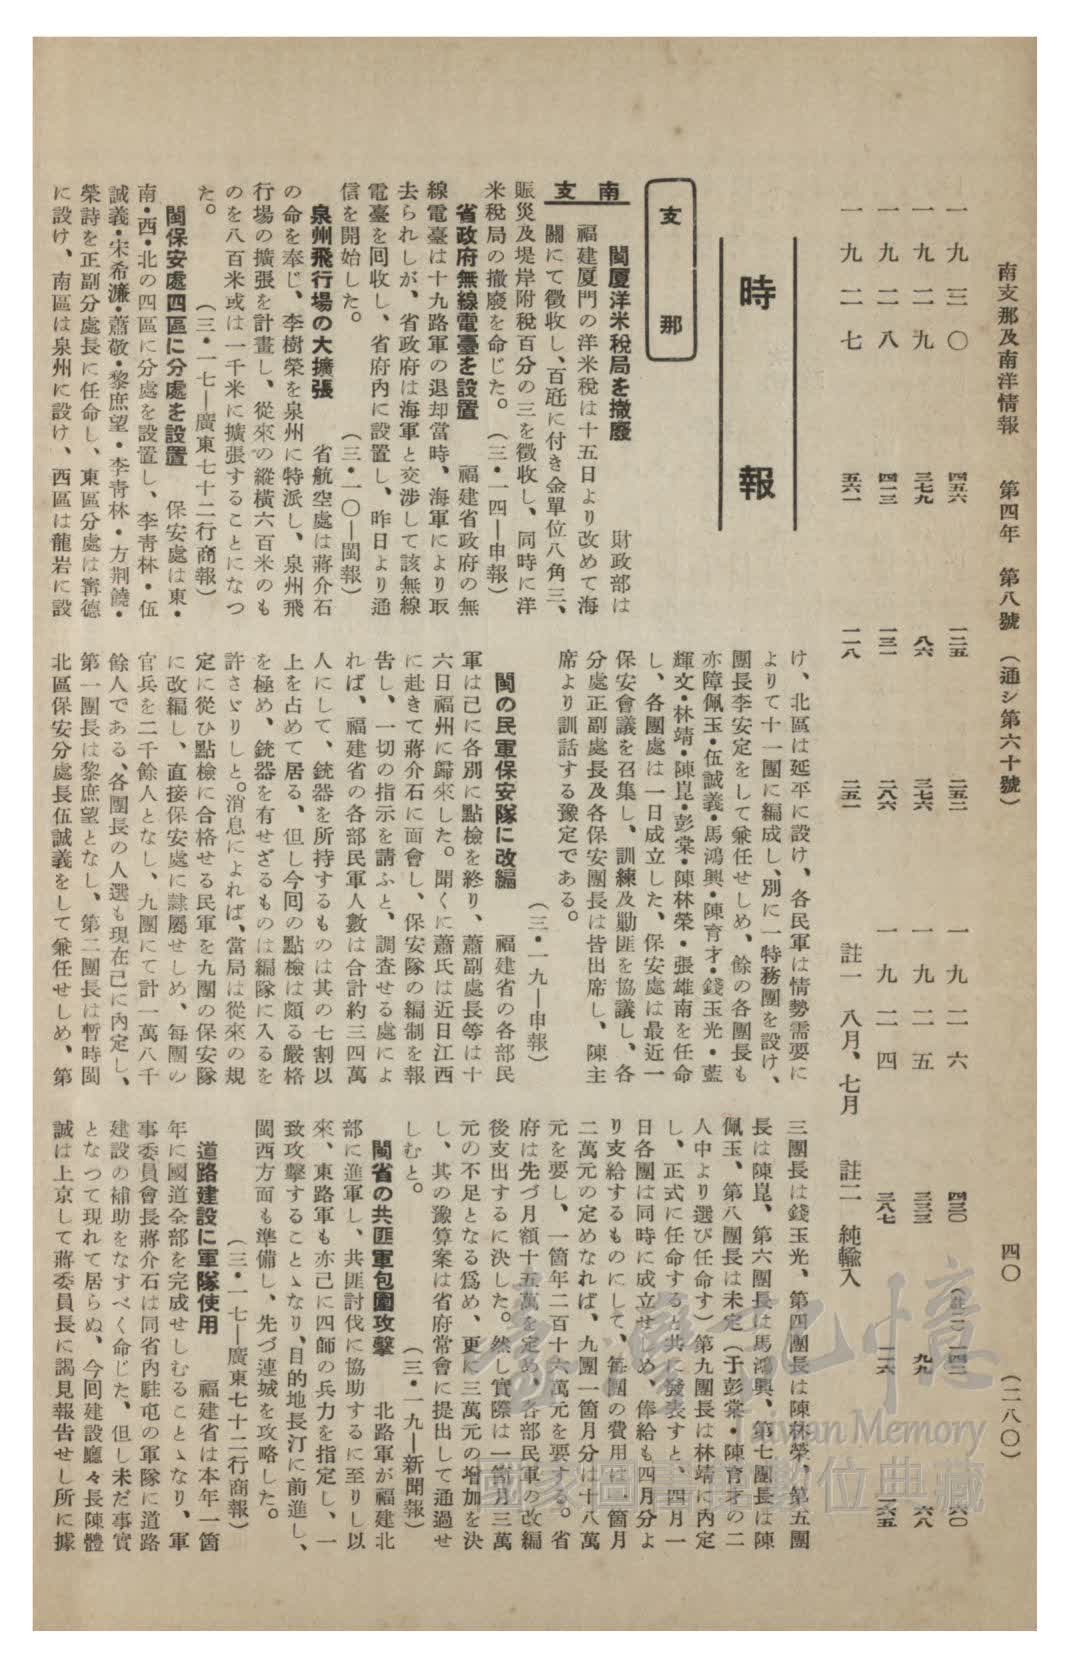 南支那及南洋情報 第四年 第八號 (通シ第六十號) 四〇 (二八〇)
一九三〇 四五六 一二五 二五二 一九二六 四三〇 (註二)一四二 一六〇
一九二九 三七九 八六 三七六 一九二五 三三三 九九 一六八
一九二八 四一三 一三一 二八六 一九二四 三八七 一二六 二六五
一九二七 五六一 一二八 二五一 註一 八月、七月 註二 純輸入
時報
支那
南支
閩厦洋米稅局を撤廢 財政部は
福建厦門の洋米稅は十五日より改めて海
關にて徵收し、百瓩に付き金單位八角三、
賑災及堤岸附稅百分の三を徵收し、同時に洋
米稅局の撤廢を命じた。 (三・一四―申報)
省政府無線電臺を設置 福建省政府の無
線電臺は十九路軍の退却當時、海軍により取
去られしが、省政府は海軍と交涉して該無線
電臺を回收し、省府內に設置し、昨日より通
信を開始した。 (三・一〇―閩報)
泉州飛行場の大擴張 省航空處は蔣介石
の命を奉じ、李樹榮を泉州に特派し、泉州飛
行場の擴張を計畫し、從來の縱橫六百米のも
のを八百米或は一千米に擴張することになつ
た。 (三・一七―廣東七十二行商報)
閩保安處四區に分處を設置 保安處は東・
南・西・北の四區に分處を設置し、李靑林・伍
誠義・宋希濂・蕭敬・黎庶望・李靑林・方荆饒・
榮詩を正副分處長に任命し、東區分處は寗德
に設け、南區は泉州に設け、西區は龍岩に設
け、北區は延平に設け、各民軍は情勢需要に
よりて十一團に編成し、別に一特務團を設け、
團長李安定をして兼任せしめ、餘の各團長も
亦障佩玉・伍誠義・馬鴻興・陳育才・錢玉光・藍
輝文・林靖・陳崑・彭棠・陳林榮・張雄南を任命
し、各團處は一日成立した、保安處は最近一
保安會議を召集し、訓練及勦匪を協議し、各
分處正副處長及各保安團長は皆出席し、陳主
席より訓話する豫定である。
(三・一九―申報)
閩の民軍保安隊に改編 福建省の各部民
軍は已に各別に點檢を終り、蕭副處長等は十
六日福州に歸來した。聞くに蕭氏は近日江西
に赴きて蔣介石に面會し、保安隊の編制を報
告し、一切の指示を請ふと、調査せる處によ
れば、福建省の各部民軍人數は合計約三四萬
人にして、銃器を所持するものは其の七割以
上を占めて居る、但し今回の點檢は頗る嚴格
を極め、銃器を有せざるものは編隊に入るを
許さゞりしと。消息によれば、當局は從來の規
定に從ひ點檢に合格せる民軍を九團の保安隊
に改編し、直接保安處に隸屬せしめ、每團の
官兵を二千餘人となし、九團にて計一萬八千
餘人である、各團長の人選も現在已に內定し、
第一團長は黎庶望となし、第二團長は暫時閩
北區保安分處長伍誠義をして兼任せしめ、第
三團長は錢玉光、第四團長は陳林榮、第五團
長は陳崑、第六團長は馬鴻興、第七團長は陳
佩玉、第八團長は未定(于彭棠・陳育才の二
人中より選び任命す)第九團長は林靖に內定
し、正式に任命すると共に發表すと、四月一
日各團は同時に成立せしめ、俸給も四月分よ
り支給するものにして、每團の費用は一箇月
二萬元の定めなれば、九團一箇月分は十八萬
元を要し、一箇年二百十六萬元を要する。省
府は先づ月額十五萬を定め、各部民軍の改編
後支出するに決した。然し實際は一箇月三萬
元の不足となる爲め、更に三萬元の增加を決
し、其の豫算案は省府常會に提出して通過せ
しむと。 (三・一九―新聞報)
閩省の共匪軍包圍攻擊 北路軍が福建北
部に進軍し、共匪討伐に協助するに至りし以
來、東路軍も亦已に四師の兵力を指定し、一
致攻擊することゝなり、目的地長汀に前進し、
閩西方面も準備し、先づ連城を攻略した。
(三・一七―廣東七十二行商報)
道路建設に軍隊使用 福建省は本年一箇
年に國道全部を完成せしむることゝなり、軍
事委員會長蔣介石は同省內駐屯の軍隊に道路
建設の補助をなすべく命じた、但し未だ事實
となつて現れて居らぬ、今回建設廳々長陳體
誠は上京して蔣委員長に謁見報告せし所に據
臺灣記憶
Taiwan Memory
國家圖書館數位典藏